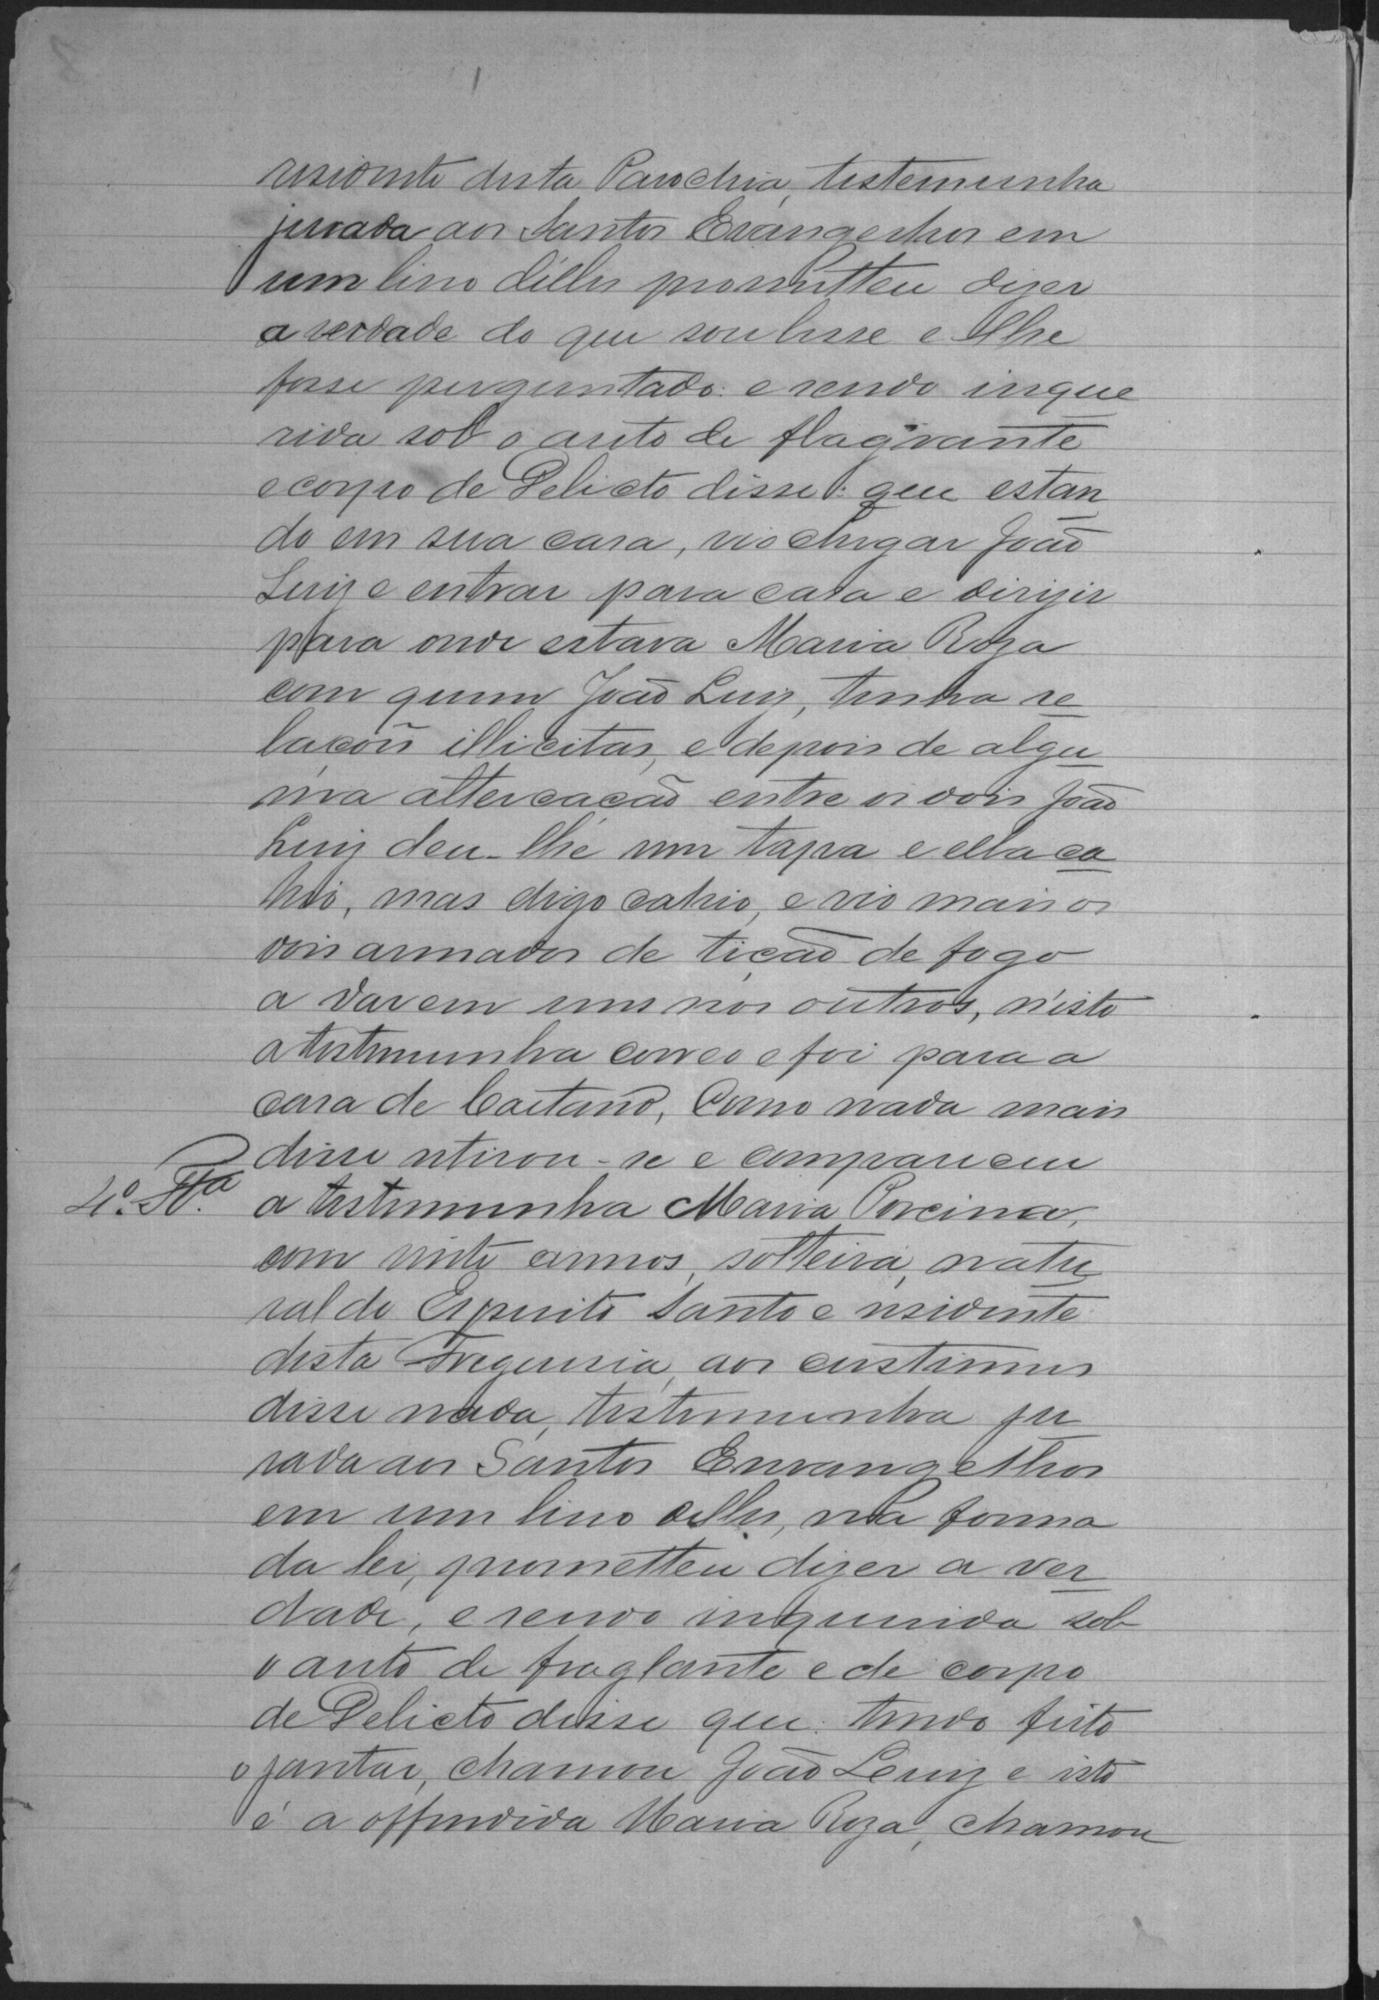 residente desta Parochia, testemunha
jurada aos Santos Evangelhos em
um livro délles promitteu dizer
a verdade do que soubesse e lhe
fosse perguntado: e sendo inque
rida sob o auto de flagrante
e corpo de Delicto disse: que estan
do em sua casa, vio chegar João
Luiz e entrar para casa e dirijir
para onde estava Maria Roza
com quem João Luiz, tinha re
lacões illicitas, e depois de algu
ma altercacão entre os dois João
Luiz deu-lhe um tapa e ella ca
hio, mas digo cahio, e vio mais os
dois armados de ticão de fogo
a darem uns nos outros, n'isto
a testemunha correo e foi para a
casa de Caetano, Como nada mais
disse retirou-se e compareceu
4ª Tta
a testemunha Maria Porcina,
com vinte annos, solteira, natu
ral do Espirito Santo e residente
desta Freguesia, aos custumes
disse nada, testemunha ju
rada aos Santos Envangelhos
em um livro delles, na forma
da lei, prometteu dizer a ver
dade, e sendo inquerida sob
o auto de fraglante e de corpo
de Delicto disse que: tendo feito
o jantar, chamou João Luiz e isto
é a offendida Maria Roza, chamou